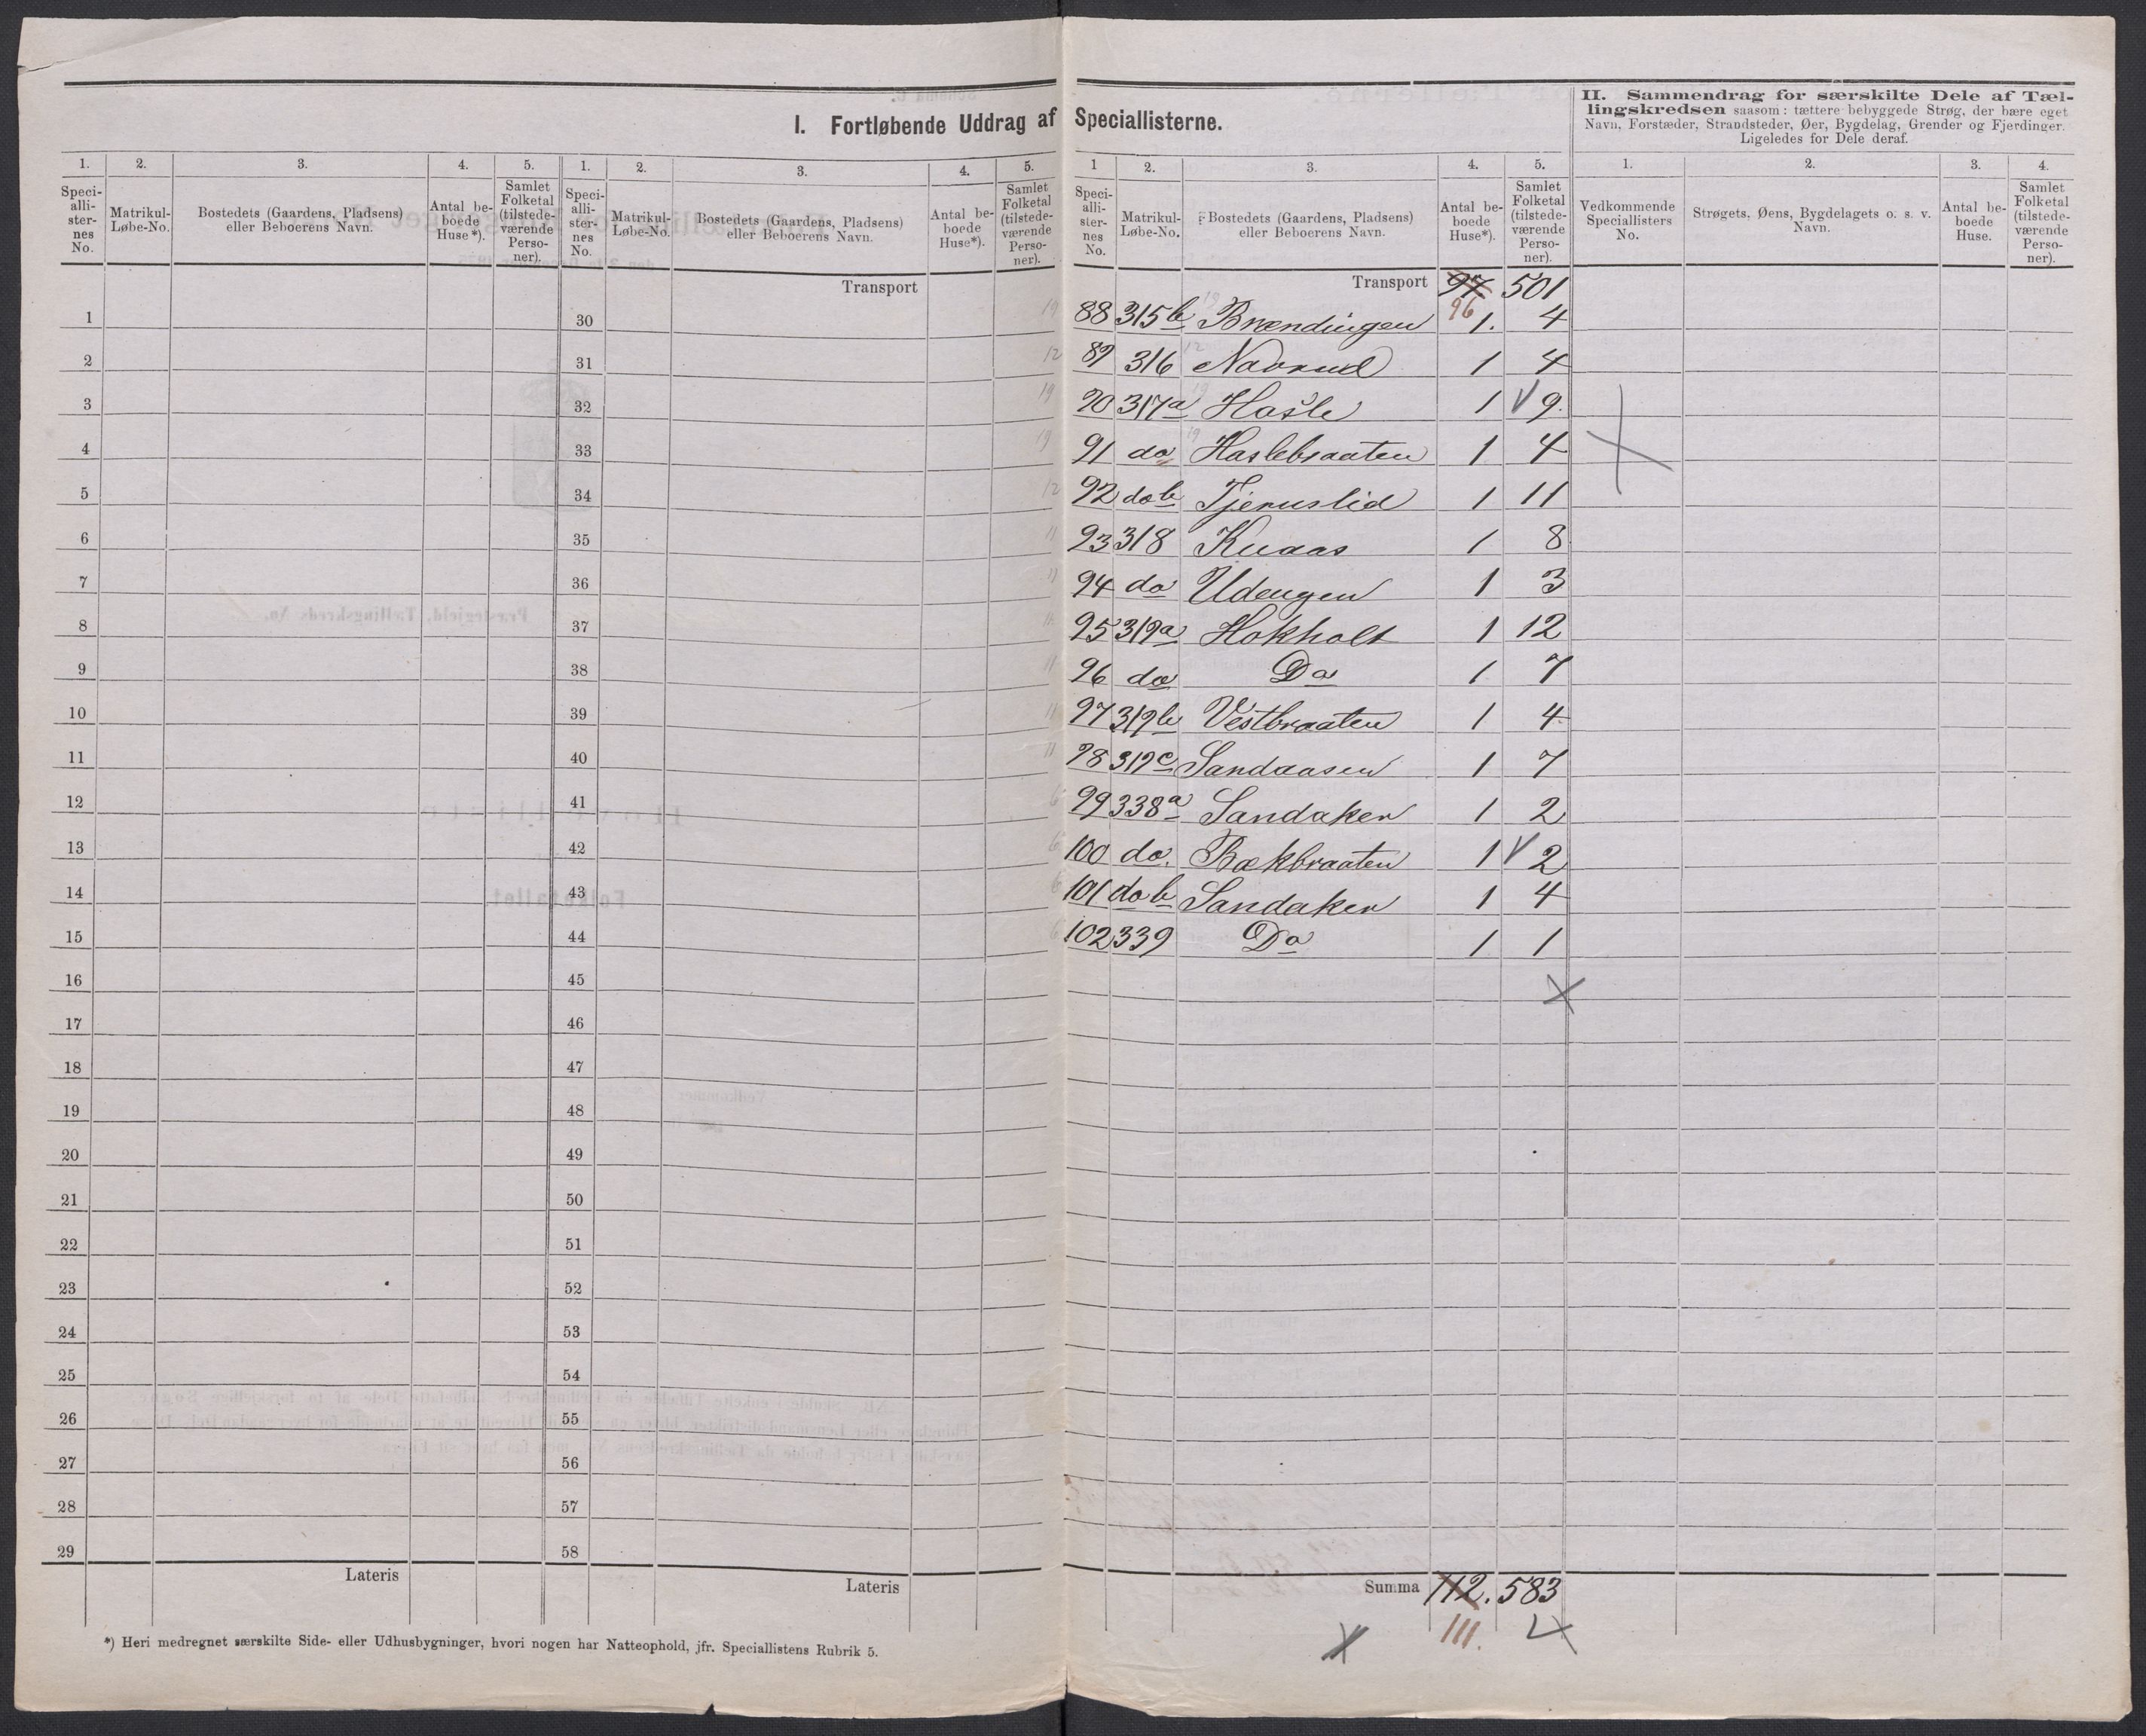 I. Fortløbende Uddrag af Speciallisterne.
II. Sammendrag for særskilte Dele af Tællingskredsen saasom: tættere bebyggede Strøg, der bære eget
Navn, Forstæder, Strandsteder, Øer, Bygdelag, Grender og Fjerdinger.
Ligeledes for Dele deraf.
1. 2. 3. 4. 5. 1. 2. 3. 4. 5.
Speciallisternes No. Matrikul-Løbe-No. Bostedets (Gaardens, Pladsens) eller Beboerens Navn. Antal beboede Huse*). Samlet Folketal (tilstedeværende Personer).
Speciallisternes No. Matrikul-Løbe-No. Bostedets (Gaardens, Pladsens) eller Beboerens Navn. Antal beboede Huse*). Samlet Folketal (tilstedeværende Personer).
Transport
1 30
2 31
3 32
4 33
5 34
6 35
7 36
8 37
9 38
10 39
11 40
12 41
13 42
14 43
15 44
16 45
17 46
18 47
19 48
20 49
21 50
22 51
23 52
24 53
25 54
26 55
27 56
28 57
29 58
Lateris Lateris
*) Heri medregnet særskilte Side- eller Udhusbygninger, hvori nogen har Natteophold, jfr. Speciallistens Rubrik 5.
1 2. 3. 4. 5. 1. 2. 3. 4.
Speciallisternes No. Matrikul-Løbe-No. Bostedets (Gaardens, Pladsens) eller Beboerens Navn. Antal beboede Huse*). Samlet Folketal (tilstedeværende Personer).
Vedkommende Speciallisters No. Strøgets, Øens, Bygdelagets o. s. v. Navn. Antal beboede Huse. Samlet Folketal (tilstedeværende Personer).
Transport 97 501
96
19 88 315b 19 Brændingen 1. 4
12 89 316 12 Navrud 1 4
19 90 317a 19 Hasle 1 9.
19 91 do 19 Haslebraaten 1 4
12 92 do b Tjernslid 1 11
11 93 318 Knaas 1 8
11 94 do Udengen 1 3
11 95 319a Hokholt 1 12
11 96 do Do 1 7
11 97 319b Vestbraaten 1 4
11 98 319c Sandaasen 1 7
6 99 338a Sandaker 1 2
6 100 do. Bækbraaten 1 2
6 101 do b Sandaker 1 4
6 102 339 Do 1 1
Summa 112. 583
111.